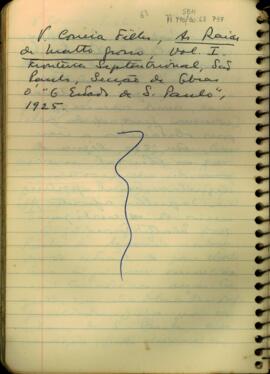 63
SBH
V. Correia Filho, As Raias
de Matto Grosso Vol. I
Fronteira Septentrional, São
Paulo, Secção de Obras
d'"O Estado de S. Paulo",
1925.